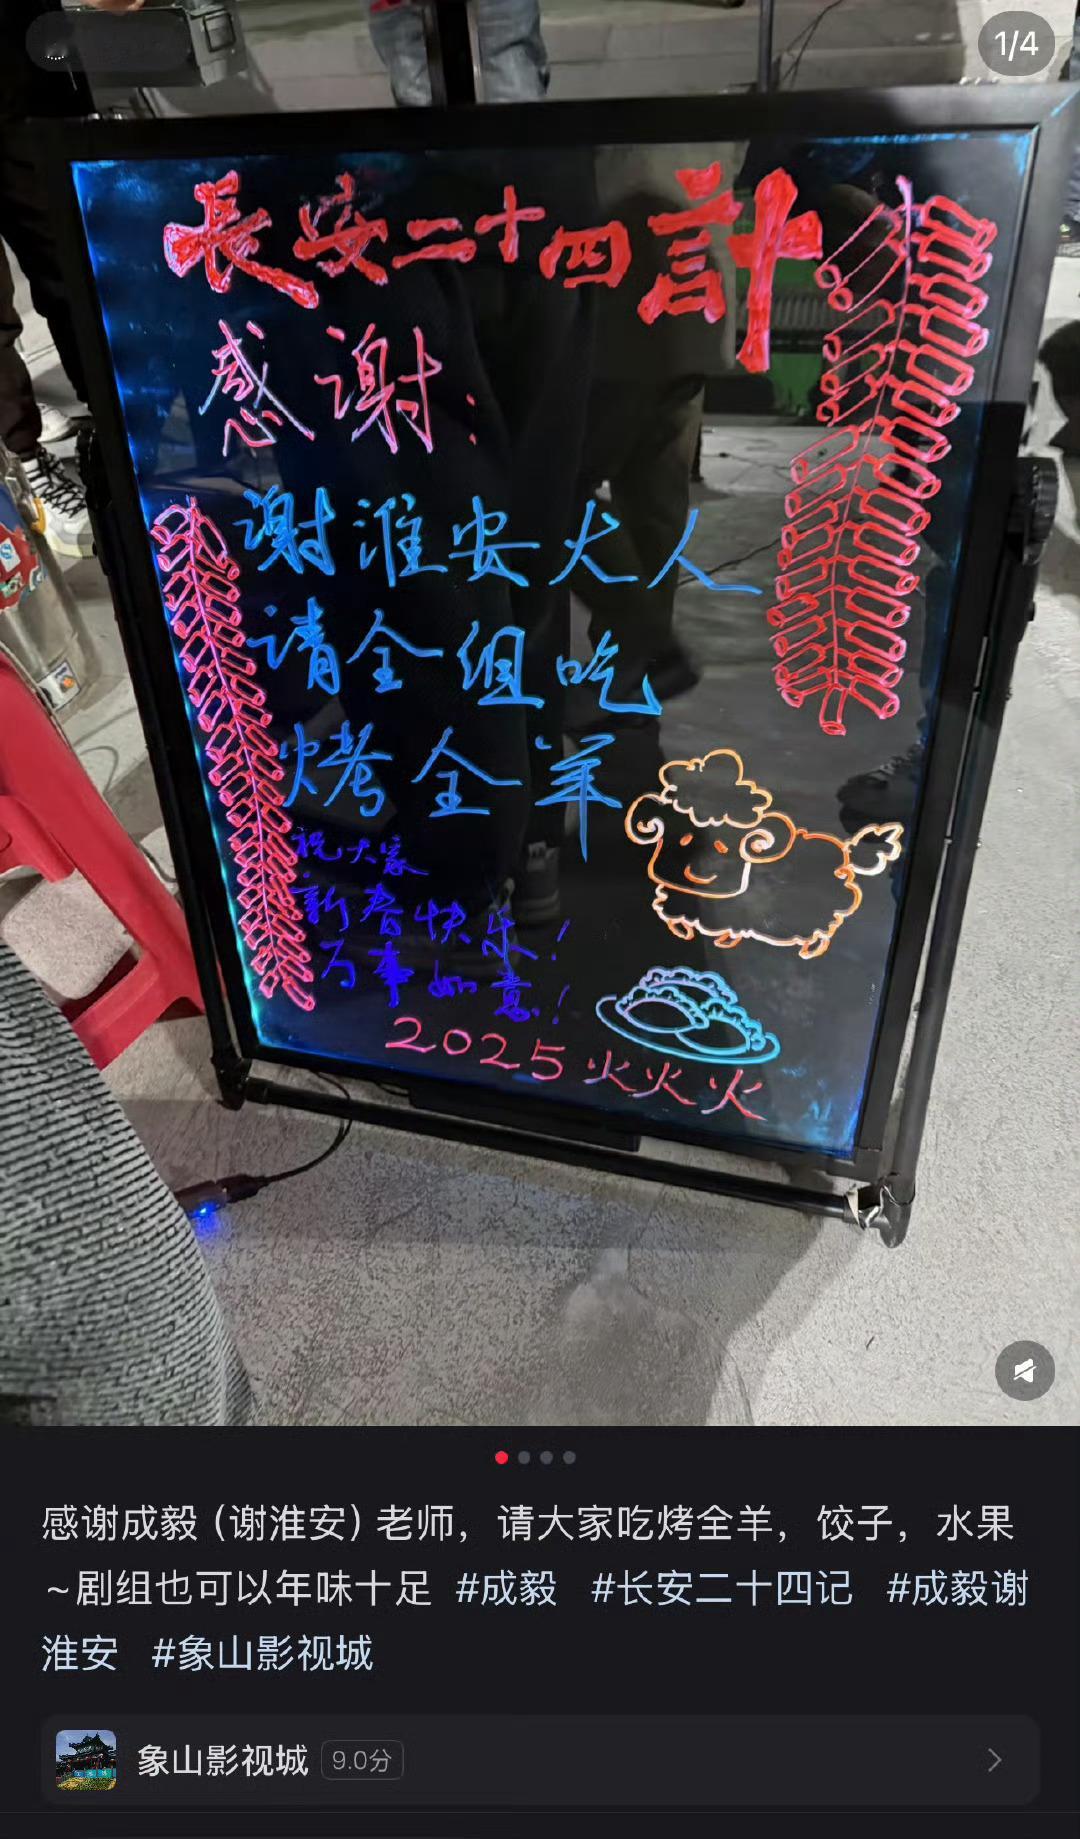 1/4
長安二十四計
感谢:
谢淮安大人
请全组吃
烤全羊
祝大家
新春快乐!
万事如意!
2025火火火
感谢成毅（谢淮安）老师，请大家吃烤全羊，饺子，水果
~剧组也可以年味十足 #成毅 #长安二十四记 #成毅谢
淮安 #象山影视城
象山影视城 9.0分